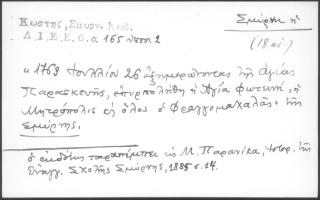 Κωστής, Σμυρν. Κώδ.
Δ.Ι.Ε.Ε.Ο.α 165 ὑποσ. 2
Σμύρνη ἡ
(18 αἰ.)
« 1763 Ἰουλλίου 26 ἐξημερώνοντας τῆς Ἁγίας
Παρασκευῆς, ἐπυρπολήθη ἡ Ἁγία Φωτεινή, ἡ
Μητρόπολις κὴ ὅλος ὁ Φραγγομαχαλᾶς» τῆς
Σμύρνης.
ὁ ἐκδότης παραπέμπει εἰς Μ. Παρανίκα, Ἱστορ. τῆς
Εὐαγγ. Σχολῆς Σμύρνης, 1885 σ. 14.